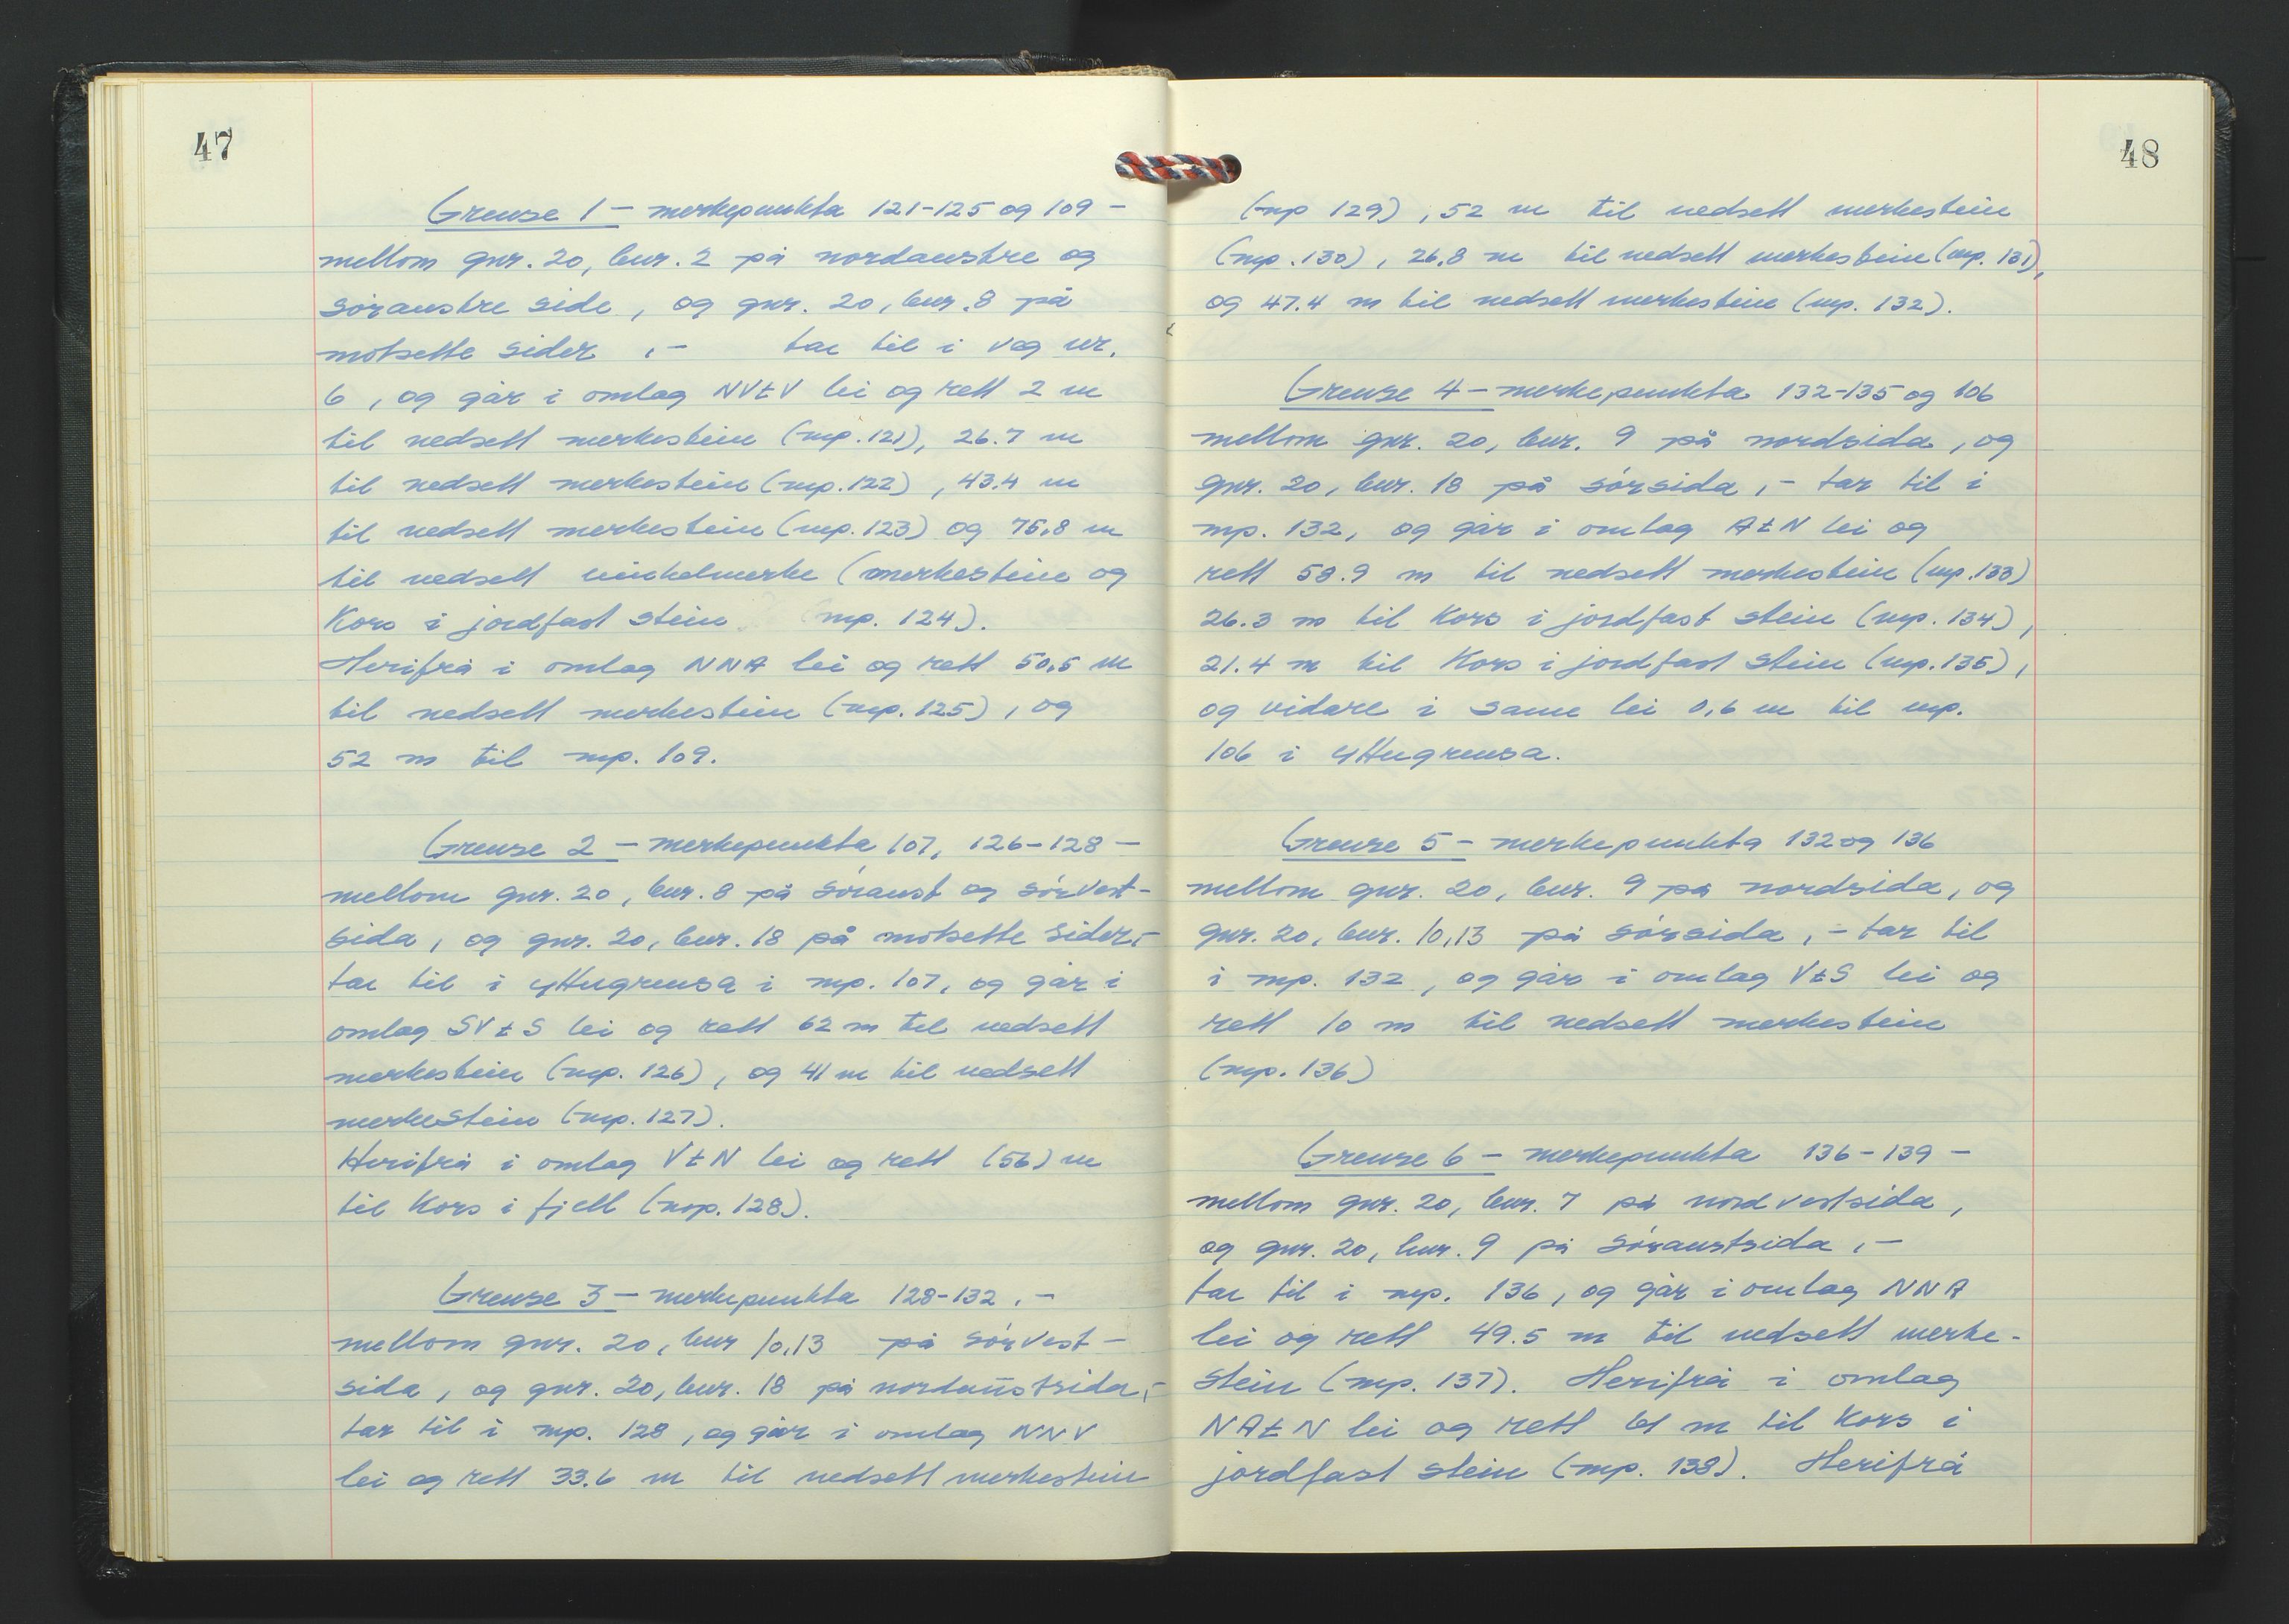 47
Grense 1 – merkepunkta 121-125 og 109 –
mellom gnr. 20, bnr. 2 på nordaustre og
søraustre side, og gnr. 20, bnr. 8 på
motsette sider ,- tar til i vag nr.
6, og går i omlag NVtV lei og rett 2 m
til nedsett merkestein (mp. 121), 26.7 m
til nedsett merkestein (mp. 122), 43.4 m
til nedsett merkestein (mp. 123) og 75,8 m
til nedsett vinkelmerke (merkestein og
Kors i jordfast stein mp. 124).
Herifrå i omlag NNA lei og rett 50,5 m
til nedsett merkestein (mp. 125), og
52 m til mp. 109.
Grense 2 – merkepunkta 107, 126-128 –
mellom gnr. 20, bnr. 8 på søraust og sørvest-
sida, og gnr. 20, bnr. 18 på motsette sider,-
tar til i yttugrensa i mp. 107, og går i
omlag SVtS lei og rett 62 m til nedsett
merkestein (mp. 126), og 41 m til nedsett
merkestein (mp. 127).
Herifrå i omlag VtN lei og rett (56) m
til Kors i fjell (mp. 128).
Grense 3 – merkepunkta 128-132 ,-
mellom gnr. 20, bnr 10,13 på sørvest-
sida, og gnr. 20, bnr. 18 på nordaustsida,-
tar til i mp. 128, og går i omlag NNV
lei og rett 33.6 m til nedsett merkestein
48
(mp 129), 52 m til nedsett merkestein
(mp. 130), 26,8 m til nedsett merkestein (mp. 131),
og 47.4 m til nedsett merkestein (mp. 132).
Grense 4 – merkepunkta 132-135 og 106
mellom gnr. 20, bnr. 9 på nordsida, og
gnr. 20, bnr. 18 på sørsida ,- tar til i
mp. 132, og går i omlag AtN lei og
rett 58.9 m til nedsett merkestein (mp. 133)
26.3 m til Kors i jordfast stein (mp. 134),
21.4 m til Kors i jordfast stein (mp. 135),
og vidare i same lei 0,6 m til mp.
106 i yttugrensa.
Grense 5 – merkepunkta 132 og 136
mellom gnr. 20, bnr. 9 på nordsida, og
gnr. 20, bnr. 10,13 på sørsida ,- tar til
i mp. 132, og går i omlag VtS lei og
rett 10 m til nedsett merkestein
(mp. 136)
Grense 6 – merkepunkta 136-139 –
mellom gnr. 20, bnr. 7 på nordvestsida,
og gnr. 20, bnr. 9 på søraustsida ,-
tar til i mp. 136, og går i omlag NNA
lei og rett 49.5 m til nedsett merke-
stein (mp. 137). Herifrå i omlag
NAtN lei og rett 61 m til Kors i
jordfast stein (mp. 138). Herifrå